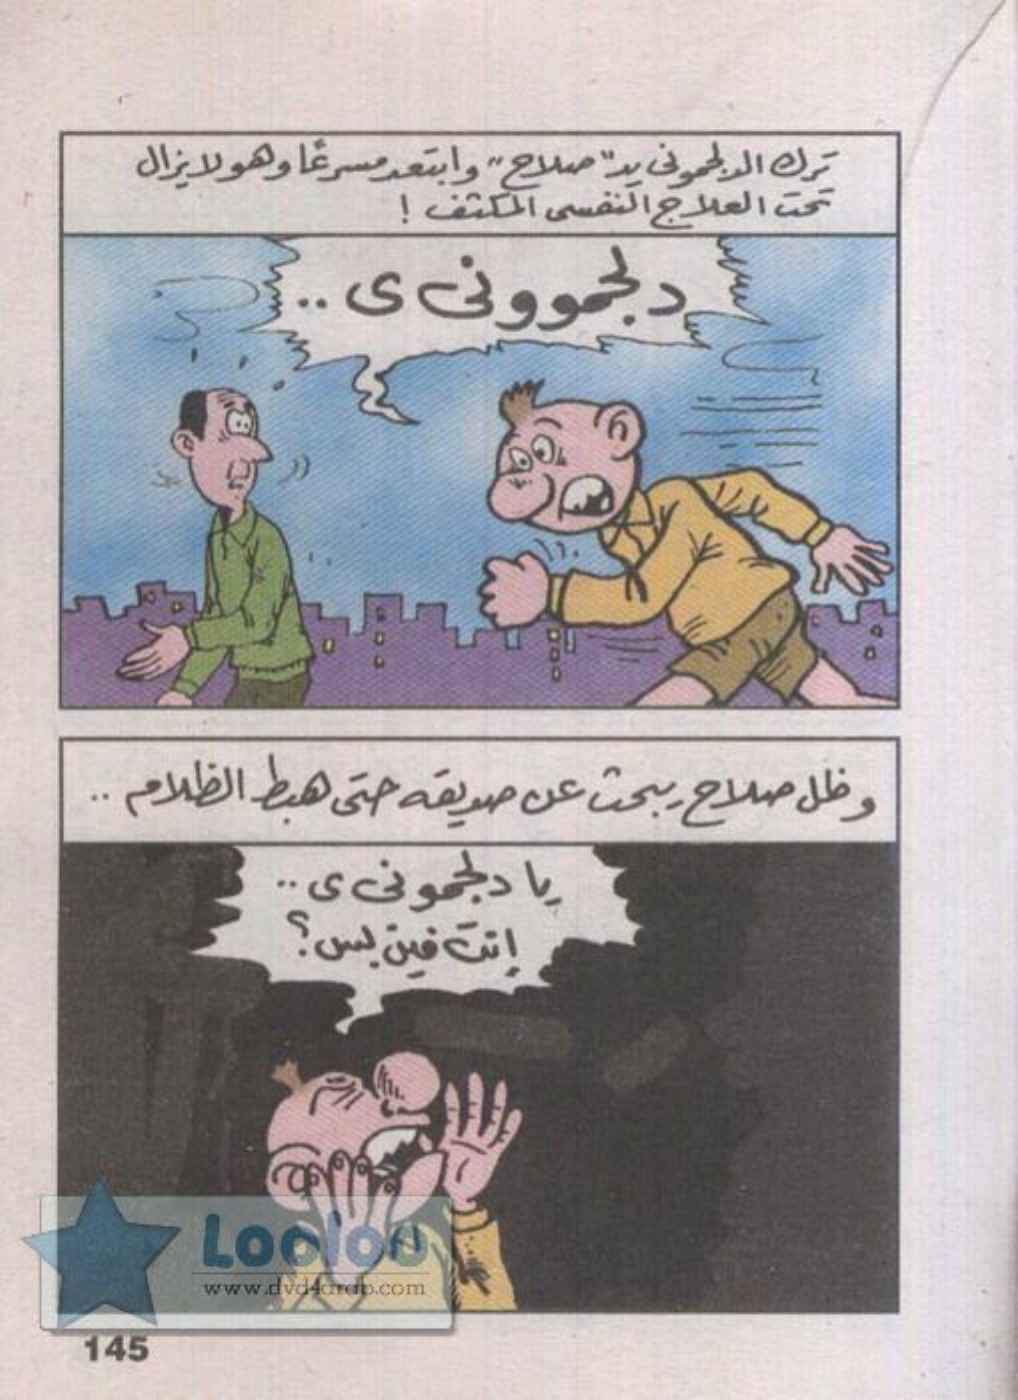 ترك الدلجمونى يد "صلاح" وابتعد مسرعًا وهو لا يزال
تحت العلاج النفسى المكثف !
دلجموونى ى ..
وظل صلاح يبحث عن صديقه حتى هبط الظلام ..
يا دلجمونى ى ..
إنت فين بس ؟
Looloo
www.dvd4arab.com
145